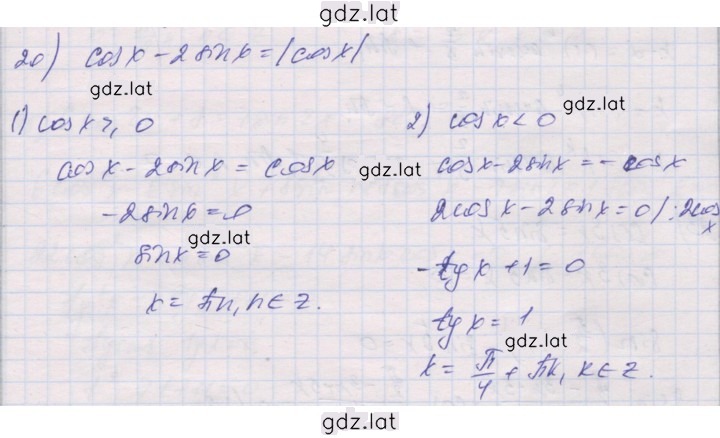 gdz.lat
20) cos x - 2 sin x = |cos x|
gdz.lat
1) cos x ≥ 0
cos x - 2 sin x = cos x
-2 sin x = 0
gdz.lat
sin x = 0
x = πn, n ∈ Z.
gdz.lat
gdz.lat
2) cos x < 0
cos x - 2 sin x = - cos x
gdz.lat
2 cos x - 2 sin x = 0 / : 2 cos x
- tg x + 1 = 0
tg x = 1
gdz.lat
x = π/4 + πk, k ∈ Z.
gdz.lat